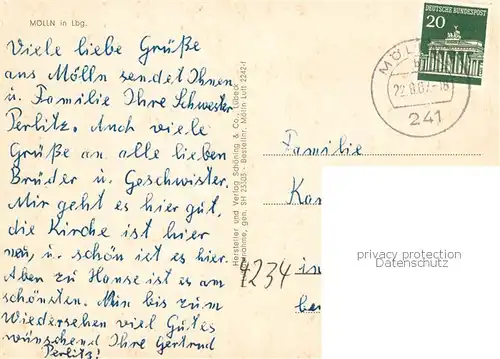 MÖLLN in Lbg.
Viele liebe Grüße
aus Mölln sendet Ihnen
u. Familie Ihre Schwester
Perlitz. Auch viele
Grüße an alle lieben
Brüder u. Geschwister.
Mir geht es hier gut,
die Kirche ist hier
neu, u. schön ist es hier.
Aben zu Hause ist es am
schönsten. Nun bis zum
Wiedersehen viel Gutes
wünschend Ihre Gertrud
Perlitz!
Hersteller und Verlag Schöning & Co., Lübeck
gen. SH 23503 - Bestellnr. Mölln Luft 2242-1
DEUTSCHE BUNDESPOST
20
MÖLL
241
Familie
4234 in
privacy protection
Datenschutz